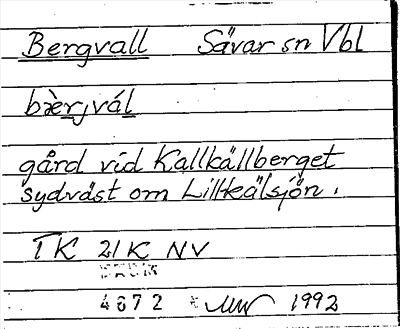 Bergvall Sävar sn Vbl
bæ̀rjvál
gård vid Kallkällberget
sydväst om Lillkälsjön.
TK 21K NV
4672 1992